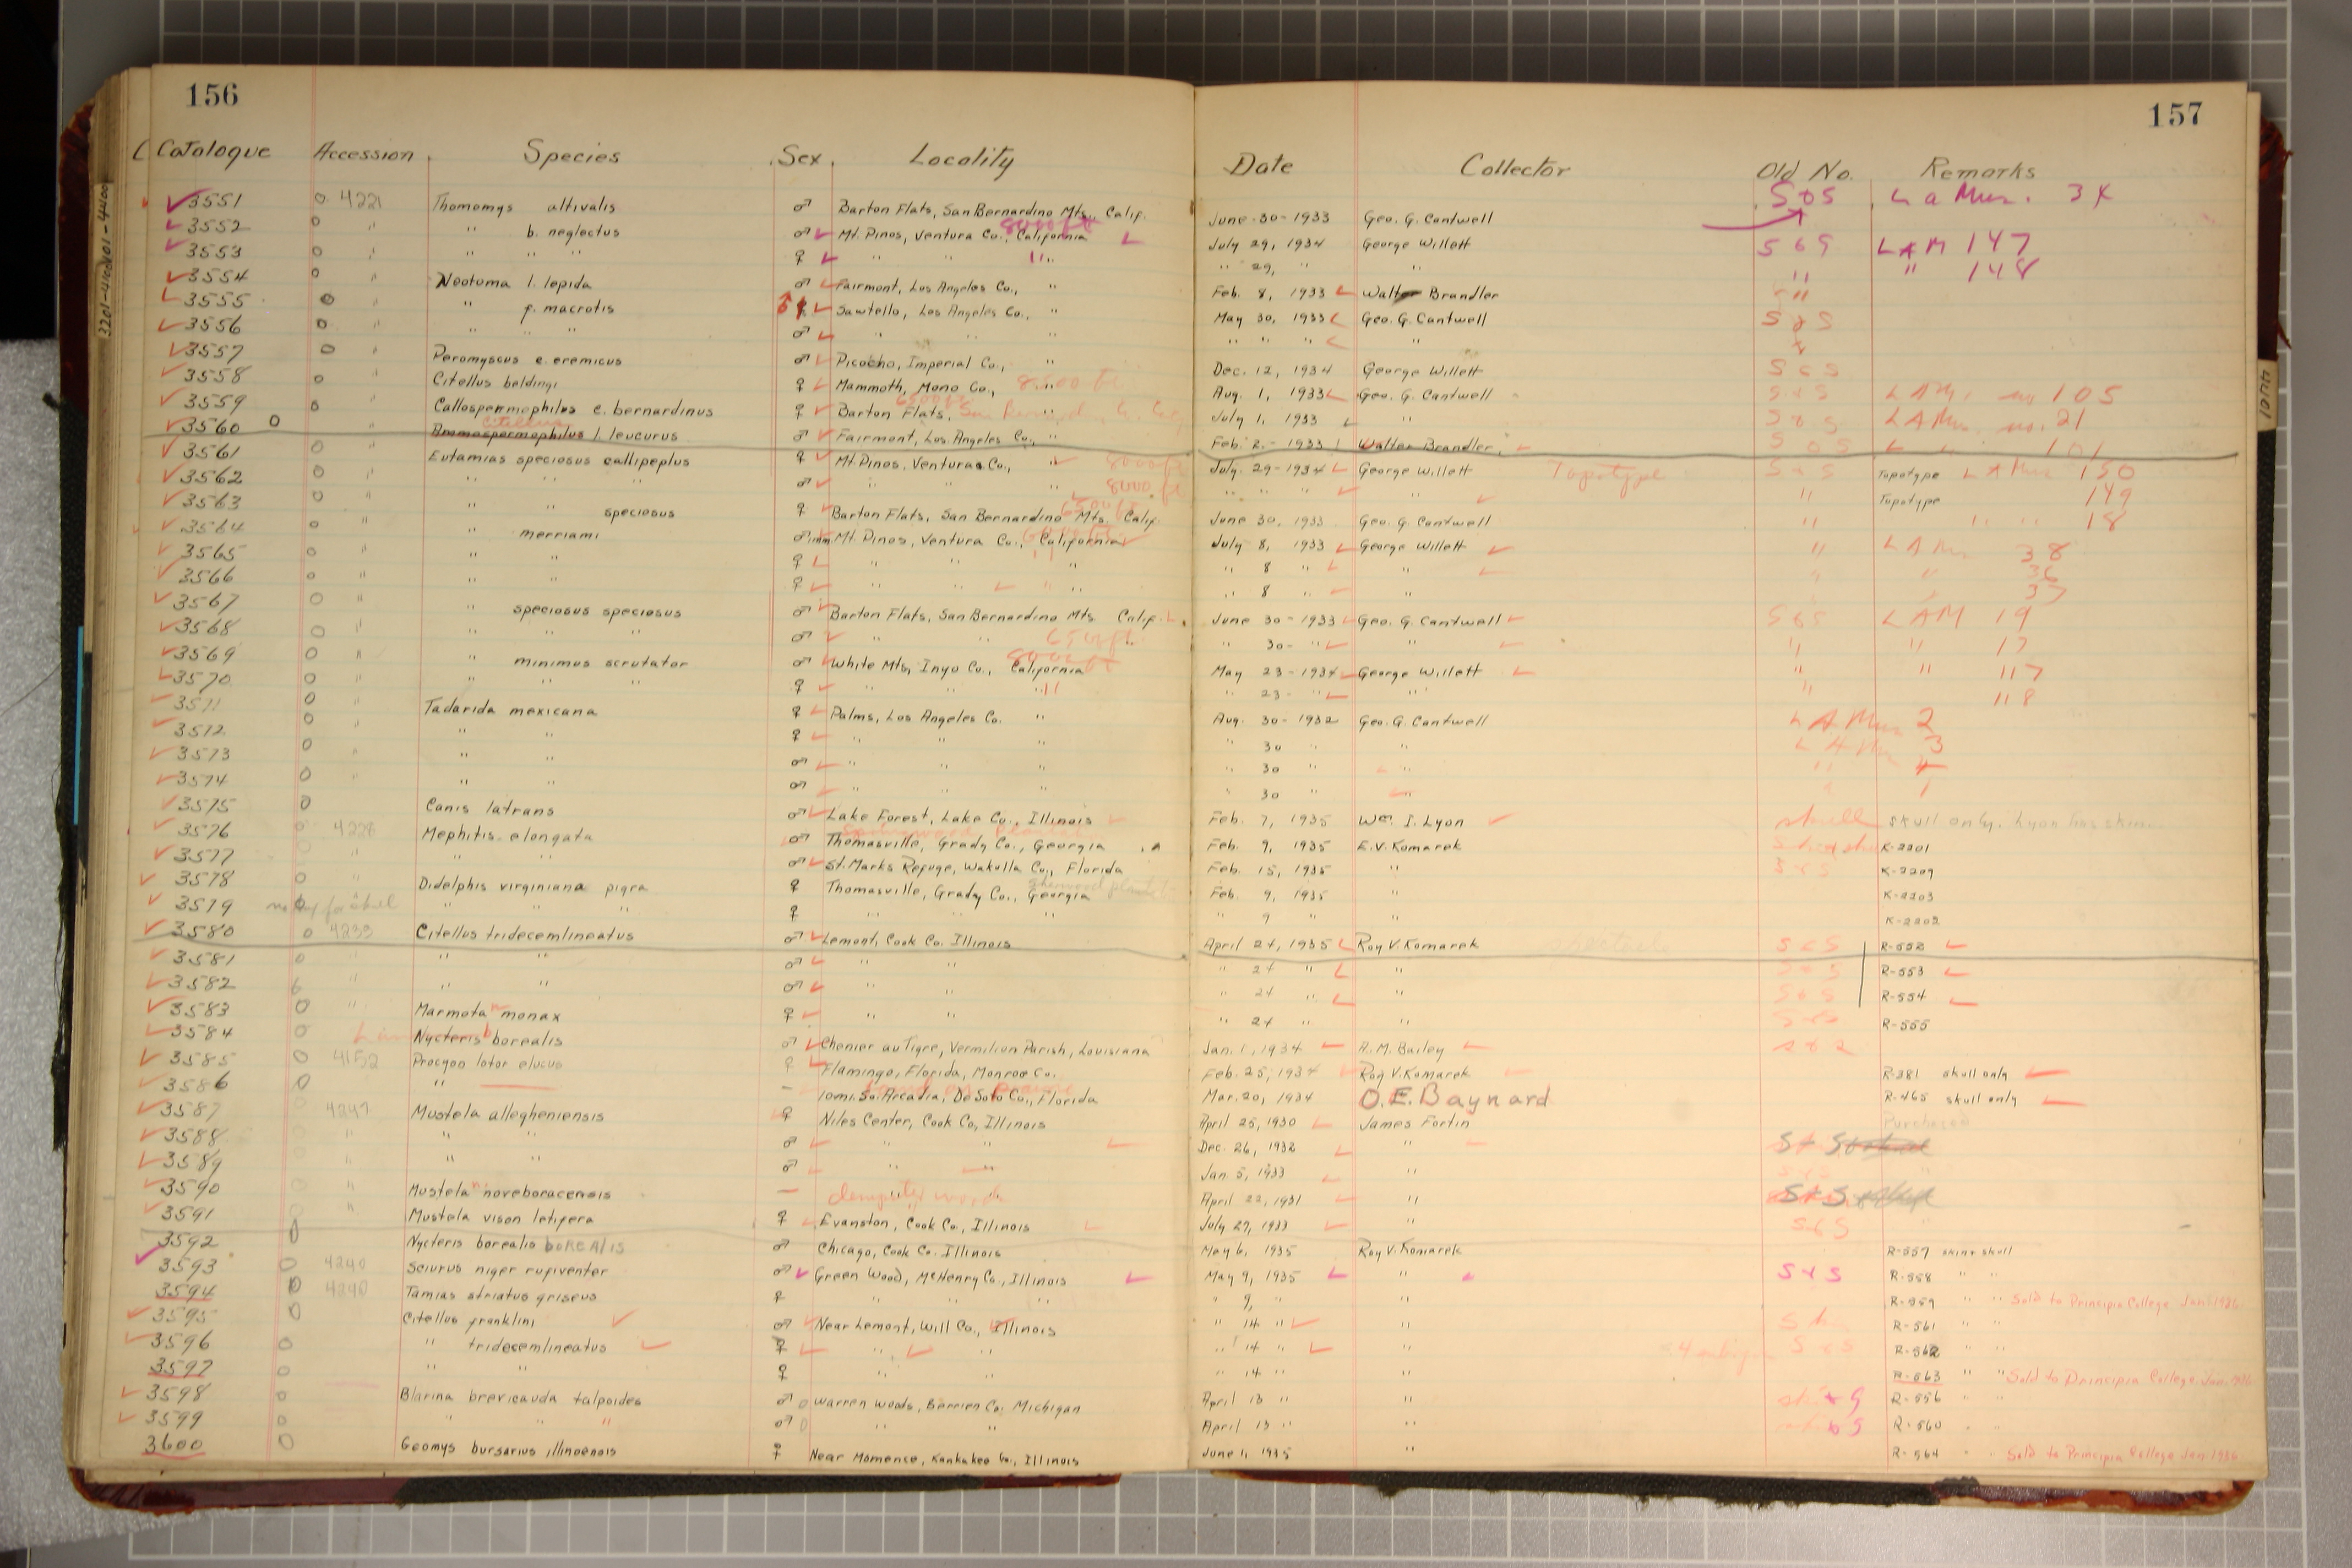 156
157
Catalogue Accession Species Sex Locality Date Collector Old No. Remarks
3551 O 4221 Thomomys altivalis ♂ Barton Flats, San Bernardino Mts., Calif. June-30-1933 Geo. G. Cantwell S&S L a Mus. 34
3552 O " " b. neglectus ♂ Mt. Pinos, Ventura Co., California 8000 ft July 29, 1934 George Willett S&S LAM 147
3553 O " " " " ♀ " " " " 29, " " " " 148
3554 O " Neotoma l. lepida ♂ Fairmont, Los Angeles Co., " Feb. 8, 1933 Walter Brandler "
3555 O " " f. macrotis ♂ Sawtello, Los Angeles Co., " May 30, 1933 Geo. G. Cantwell S&S
3556 O " " " " ♂ " " " " " " "
3557 O " Peromyscus e. eremicus ♂ Picacho, Imperial Co., " Dec. 12, 1934 George Willett S&S
3558 O " Citellus beldingi ♀ Mammoth, Mono Co., " Aug. 1, 1933 Geo. G. Cantwell S&S LAM. no 105
3559 O " Callospermophilus c. bernardinus ♀ Barton Flats, 6500 ft " July 1, 1933 " S&S LAMus. no. 21
3560 O " Ammospermophilus Citellus l. leucurus ♂ Fairmont, Los Angeles Co., " Feb. 2.-1933 Walter Brandler S&S L " 101
3561 O " Eutamias speciosus callipeplus ♀ Mt. Pinos, Ventura Co., " 8000 ft July. 29-1934 George Willett Topotype S&S Topotype LAMus 150
3562 O " " " " ♂ " " " 8000 ft " " " " " Topotype 149
3563 O " " " speciosus ♀ Barton Flats, San Bernardino Mts. Calif. 6500 ft June 30, 1933 Geo. G. Cantwell " " " 18
3564 O " " merriami ♂ imm Mt. Pinos, Ventura Co., California July 8, 1933 George Willett " LAM 38
3565 O " " " ♀ " " " " 8 " " " " 36
3566 O " " " ♀ " " " " 8 " " " " 37
3567 O " " speciosus speciosus ♂ Barton Flats, San Bernardino Mts. Calif. June 30-1933 Geo. G. Cantwell S&S LAM 19
3568 O " " " " ♂ " " 6500 ft. " " 30- " " " " 17
3569 O " " minimus scrutator ♂ White Mts, Inyo Co., California 8000 ft May 23-1934 George Willett " " 117
3570 O " " " " ♀ " " " " 23- " " " 118
3571 O " Tadarida mexicana ♀ Palms, Los Angeles Co. " Aug. 30-1932 Geo. G. Cantwell LA Mus 2
3572 O " " " ♀ " " " " 30 " " LA Mus 3
3573 O " " " ♂ " " " 30 " " " 4
3574 O " " " ♂ " " " 30 " " " 1
3575 O Canis latrans ♂ Lake Forest, Lake Co., Illinois Feb. 7, 1935 Wm. I. Lyon skull skull only. Lyon has skin
3576 O 4228 Mephitis elongata ♂ Thomasville, Grady Co., Georgia Feb. 9, 1935 E.V. Komarek K-2201
3577 " " " ♂ St. Marks Refuge, Wakulla Co., Florida Feb. 15, 1935 " S&S K-2209
3578 O " Didelphis virginiana pigra ♀ Thomasville, Grady Co., Georgia Feb. 9, 1935 " K-2203
3579 " " " ♀ " " " " 9 " " K-2202
3580 O 4233 Citellus tridecemlineatus ♂ Lemont, Cook Co. Illinois April 24, 1935 Roy V. Komarek S&S R-552
3581 O " " " ♂ " " " 24 " " S&S R-553
3582 O " " ♂ " " " 24 " " S&S R-554
3583 O " Marmota m monax ♀ " " " 24 " " S&S R-555
3584 O Nycteris b borealis ♂ Chenier au Tigre, Vermilion Parish, Louisiana Jan. 1, 1934 A.M. Bailey
3585 O 4152 Procyon lotor elucus ♀ Flamingo, Florida, Monroe Co. Feb. 25, 1934 Roy V. Komarek R-381 skull only
3586 O " — 10 mi. So. Arcadia, De Soto Co., Florida Mar. 20, 1934 O.E. Baynard R-465 skull only
3587 4247 Mustela allegheniensis ♀ Niles Center, Cook Co, Illinois April 25, 1930 James Fortin Purchased
3588 " " " ♂ " " Dec. 26, 1932 " S+S
3589 " " " ♂ " " Jan. 5, 1933 "
3590 " Mustela n noveboracensis — April 22, 1931 " S+S
3591 " Mustela vison letifera ♀ Evanston, Cook Co., Illinois July 27, 1933 " S&S
3592 O Nycteris borealis borealis ♂ Chicago, Cook Co. Illinois May 6, 1935 Roy V. Komarek R-557 skin+skull
3593 O 4240 Sciurus niger rufiventer ♂ Green Wood, McHenry Co., Illinois May 9, 1935 " S+S R-558 " "
3594 O 4240 Tamias striatus griseus ♀ " " " " 9, " " R-559 " " Sold to Principia College Jan. 1936
3595 O Citellus franklini ♂ Near Lemont, Will Co., Illinois " 14 " " R-561 " "
3596 O " tridecemlineatus ♀ " " " 14 " " S&S R-562 " "
3597 O " " ♀ " " " 14 " " R-563 " " Sold to Principia College. Jan. 1936
3598 O Blarina brevicauda talpoides ♂ Warren Woods, Berrien Co. Michigan April 13 " " R-556 " "
3599 O " " " ♂ " " April 13 " " R-560 " "
3600 O Geomys bursarius illinoensis ♀ Near Momence, Kankakee Co., Illinois June 1, 1935 " R-564 " " Sold to Principia College Jan 1936
3201-4100